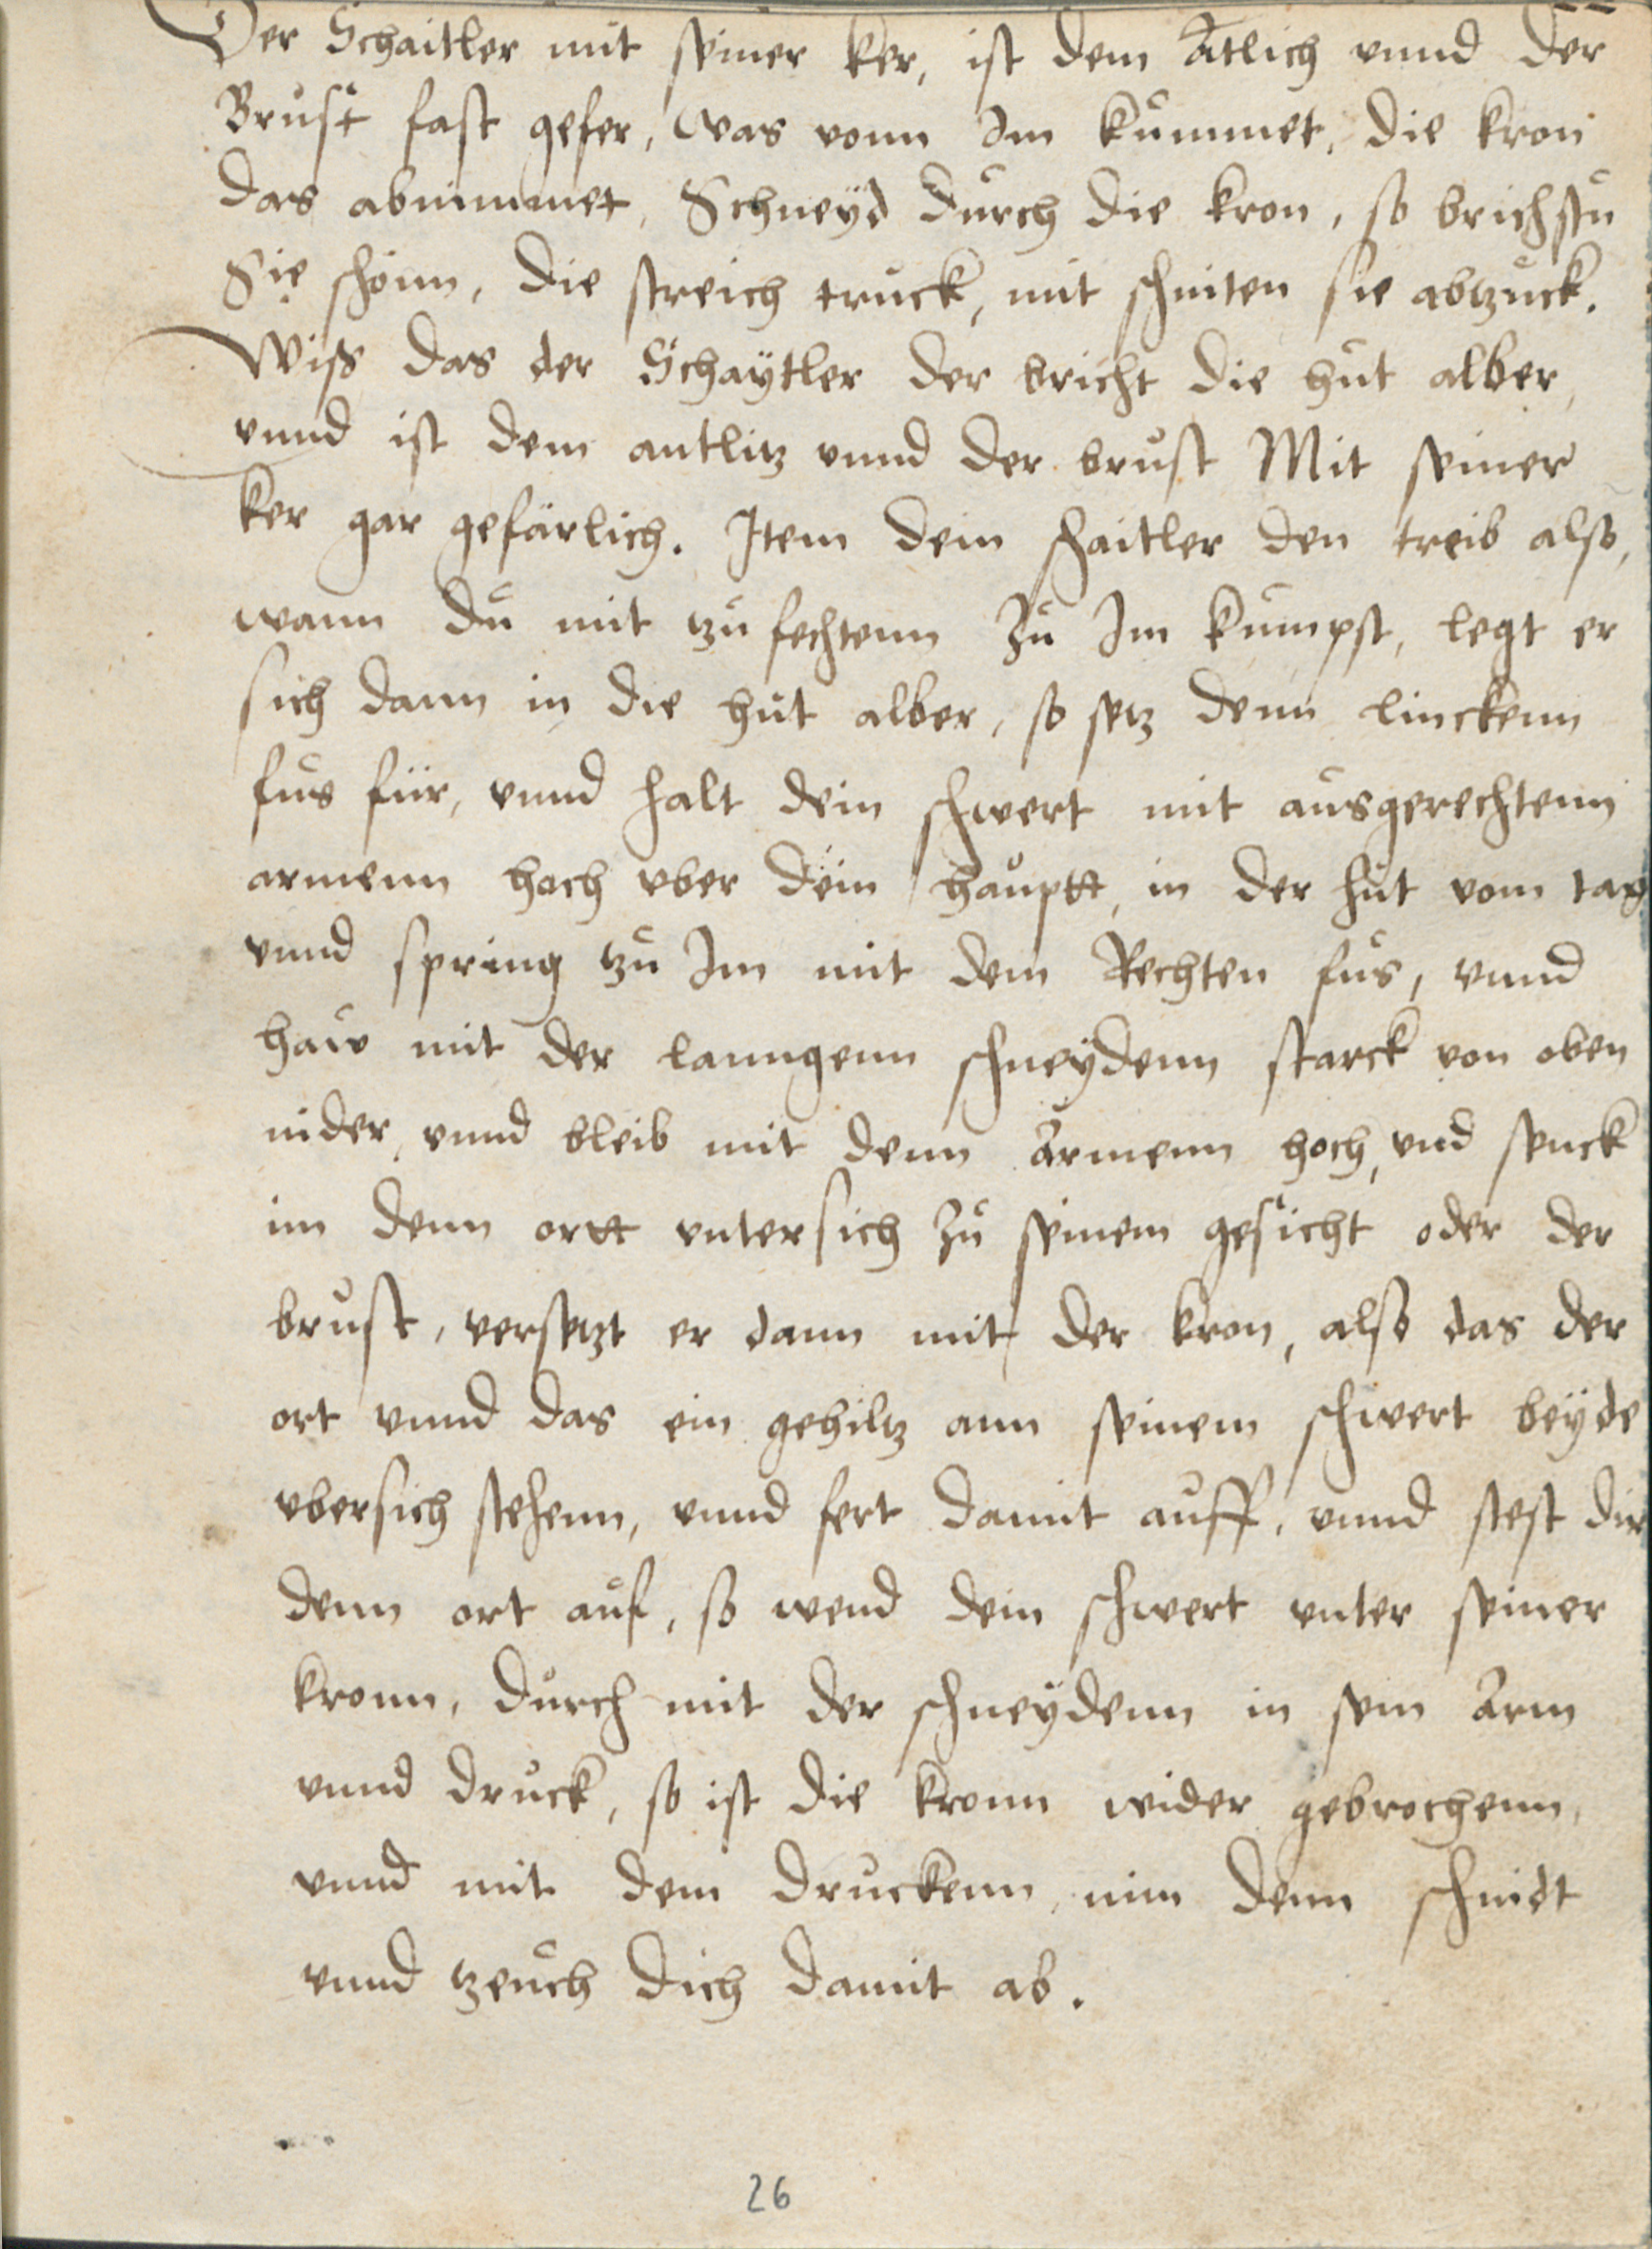 Der Schaitler mit seiner ker, ist dem Atlich vnnd der
Brust fast gefer, was vonn Im kummet, die kron
das abnimmet, Schneyd durch die kron, so brichstu
Sie schonn, die streich truck, mit schniten sie abtzuck.
Wiss das der Schaytler der bricht die hut alber,
vnnd ist dem antlitz vnnd der brust Mit seiner
ker gar gefärlich. Item dein schaitler den treib also,
wann du mit tzufechtenn Zu Im kumpst, legt er
sich dann in die hut alber, so setz denn linckenn
fus für, vnnd halt dein schwert mit ausgerechtenn
armenn hoch vber dein hauptt, in der hut vom tag
vnnd spring tzu Im mit dem Rechten fus, vnnd
haw mit der lanngenn schneydenn starck von oben
nider, vnnd bleib mit denn Armenn hoch, vnd senck
im denn ortt vntersich Zu seinem gesicht oder der
brust, versetzt er dann mit der kron, also das der
ort vnnd das ein gehiltz ann seinem schwert beyde
vbersich stehenn, vnnd fert damit auff, vnnd stest dir
denn ort auf, so wend dein schwert vnter seiner
kronn, durch mit der schneydenn in sein Arm
vnnd druck, so ist die kronn wider gebrochenn,
vnnd mit dem druckenn, nim denn schnidt
vnnd tzeuch dich damit ab.
26